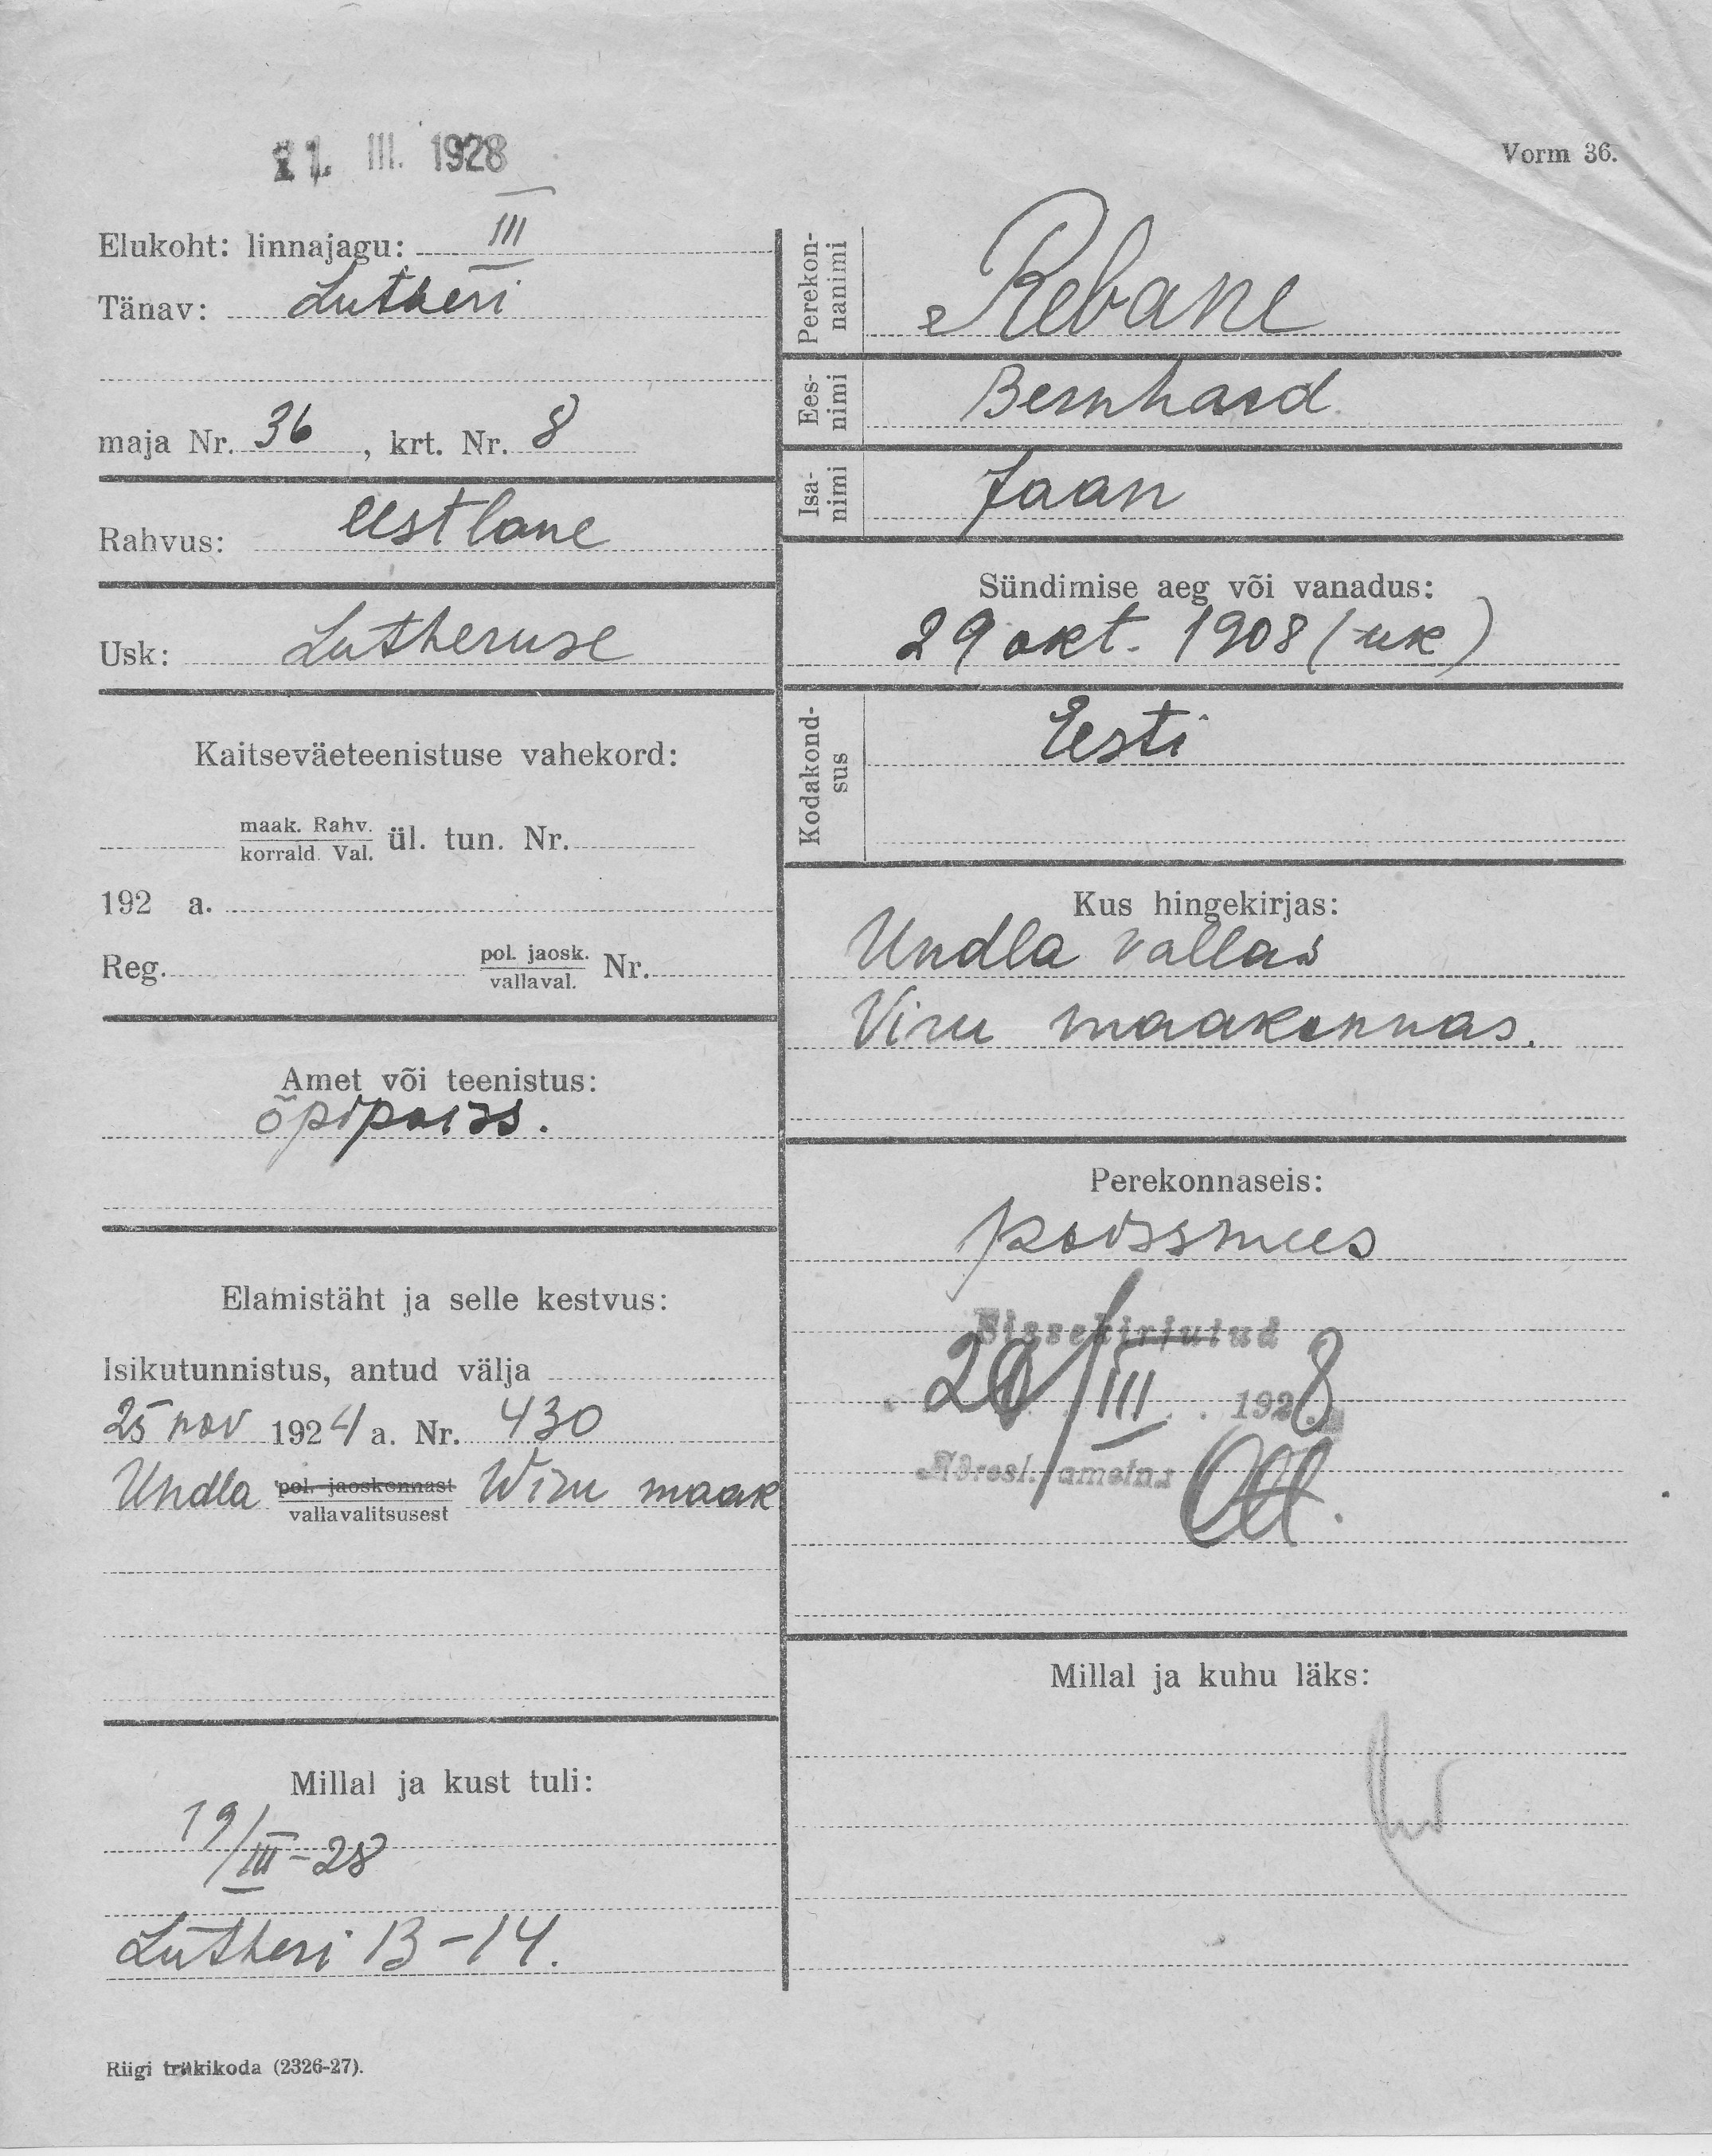 21. III. 1928
Vorm 36.
Elukoht: linnajagu: III
Tänav: Lutheri
maja Nr. 36, krt. Nr. 8
Rahvus: eestlane
Usk: Lutheruse
Kaitseväeteenistuse vahekord:
maak. Rahv.
korrald. Val. ül. tun. Nr.
192 a.
Reg. pol. jaosk. Nr.
vallaval.
Amet või teenistus:
õpipoiss.
Elamistäht ja selle kestvus:
Isikutunnistus, antud välja
25 nov 1924 a. Nr. 430
Undla pol. jaoskonnast Wiru maak
vallavalitsusest
Millal ja kust tuli:
19/III-28
Lutheri 13-14.
Riigi trükikoda (2326-27).
Perekon-
nanimi
Rebane
Ees-
nimi
Bernhard
Isa-
nimi
Jaan
Sündimise aeg või vanadus:
29 okt. 1908 (uk)
Kodakond-
sus
Eesti
Kus hingekirjas:
Undla vallas
Viru maakonnas.
Perekonnaseis:
poissmees
Sissekirjutud
/III 1928
Millal ja kuhu läks: